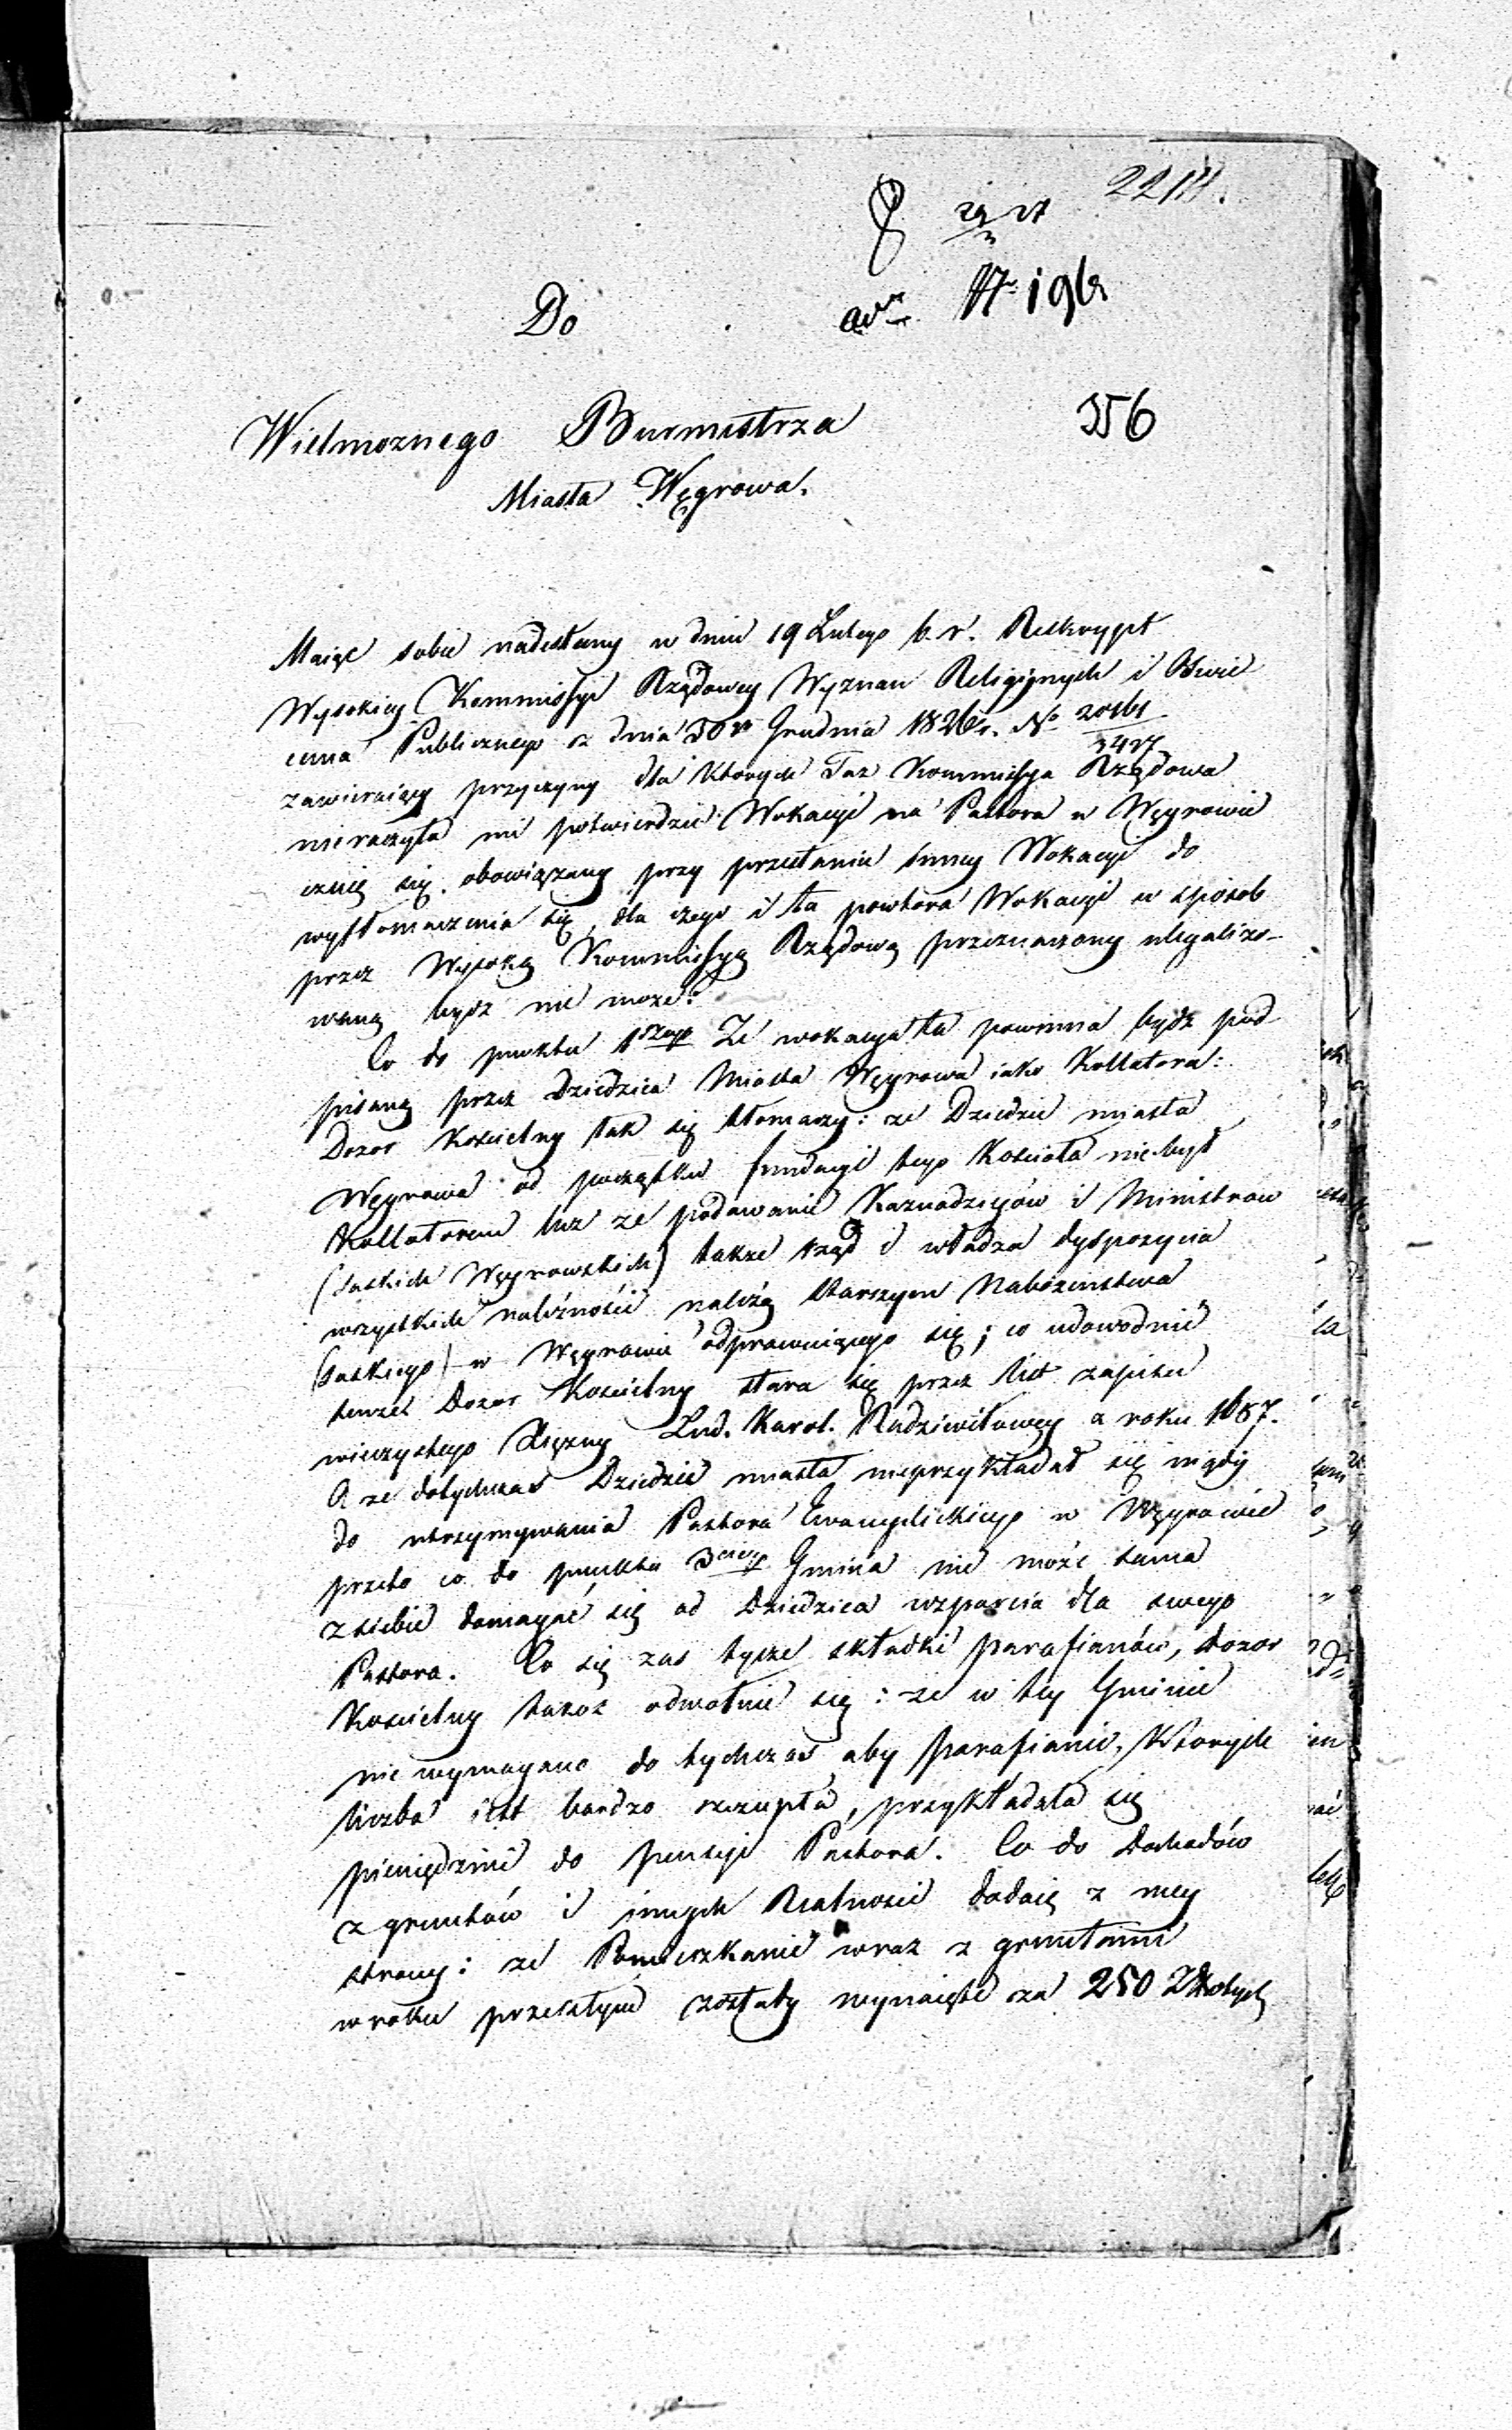 2214.
29/3 27
Do
adr. N 196
356
Wielmoznego Burmistrza
Miasta Węgrowa.
Maiąc sobie nadesłany w dniu 19 Lutego b. r. Reskrypt
Wysokiey Kommissyi Rządowey Wyznań Religijnych i Oświe
cenia Publicznego z dnia 30 Grudnia 1826 r. No 20161/3427
zawieraiący przyczyny dla ktorych Taż Kommissya Rządowa
nieraczyła mi potwierdzić Wokacyi na Pastora w Węgrowie
czuię się obowiązany przy przesłaniu inney Wokacyi do
wytłomaczenia się, dla czego i ta powtora Wokacyi w sposob
przez Wysoką Kommissyą Rządową przeznaczony ulegalizo-
waną bydź nie moze:
Co do punktu 1szego Ze wokacya ta powinna bydź pod-
pisaną przez Dziedzica Miasta Węgrowa iako Kollatora:
Dozor Koscielny tak się tłomaczy: ze Dziedzic miasta
Węgrowa od początku fundacyi tego Kościoła nie był
Kollatorem lecz ze podawanie Kaznodzieyów i Ministrow
(saskich Węgrowskich) także rząd i władza dyspozycia
wszystkich należności należą starszym Nabożenstwa
(saskiego) w Węgrowie odprawuiącego się; co udowodnić
tenże Dozor Koscielny stara się przez list zapisu
wieczystego Xiężny Lud. Karol. Radziwiłowey z roku 1687.
A ze dotychczas Dziedzic miasta nieprzykładał się nigdy
do utrzymywania Pastora Ewangelickiego w Węgrowie
przeto co do punktu 3ciego Gmina nie może sama
z siebie domagać się od Dziedzica wsparcia dla swego
Pastora. Co się zas tycze składki parafianów, Dozor
Koscielny takoz odwołuie się: ze w tey Gminie
nie wymagano do tychczas aby parafianie, ktorych
liczba iest bardzo szczupła, przykładała się
pieniędzmi do pensyi Pastora. Co do Dochodów
z gruntów i innych Realnosci dodaię z mey
strony: ze Pomieszkanie wraz z gruntami
w roku przeszłym zostały wynaięte za 250 Złotych